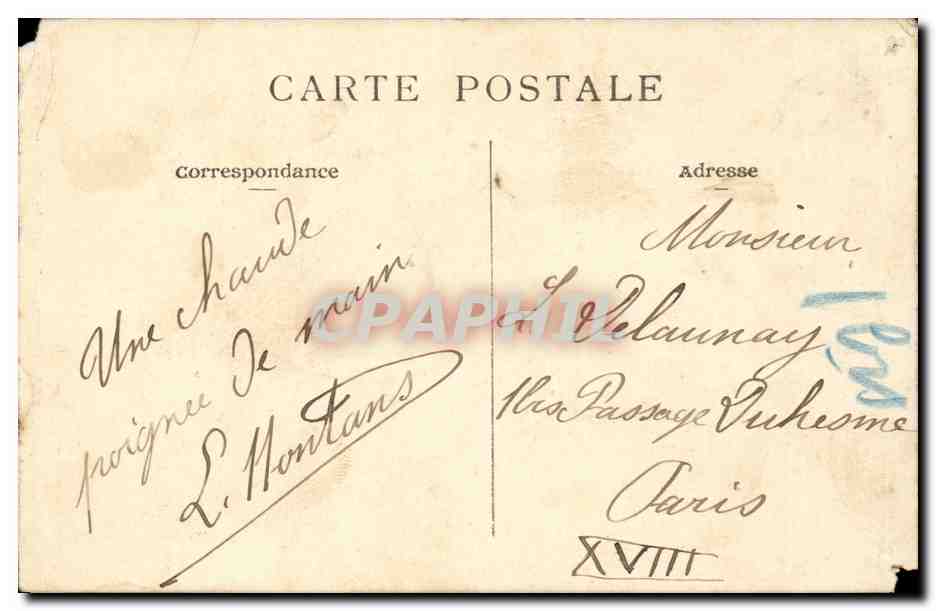 CARTE POSTALE
Correspondance
Une chaude
poignée de main
L. Montans
Adresse
Monsieur
L. Delaunay
1bis Passage Duhesme
Paris
XVIII
CPAPHIL